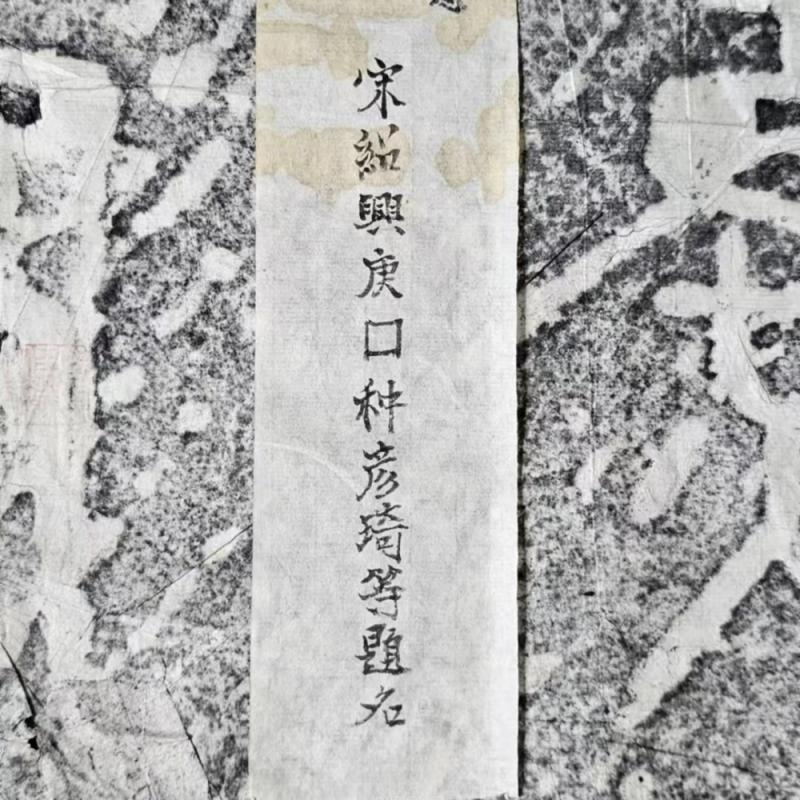 宋紹興庚口种彦琦等題名